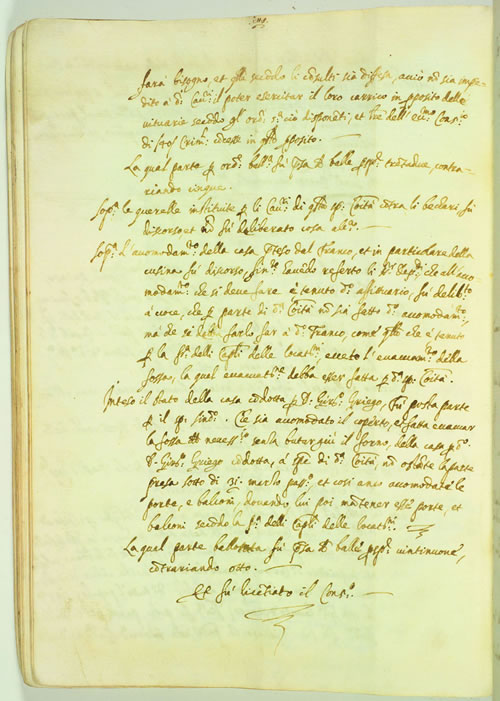 farà bisogno, et gli secondo li consulti sia difesa, acciò nō sia impe-
dito à d. Cav.ri il poter esercitar il loro carrico in pposito delle
vituarie secōdo gl' ord. sop.a ciò disponēti, et l're dell' ecc.mo Cons.o
di sopra q.sto pposito.
La qual parte p ord. ball.ta fù psa de balle psp. trētadue, contra-
riando cinque.
Sop.a le querelle instituite p li Cav.ri di q.sta sp. Coītà cōtra li beccari, fù
discorso et nō fù deliberato cosa alc.a
Sop.a l'accomodam.to della casa presa dal Franco, et in particolare della
cusina fù discorso, havēdo referto li che all'acco-
modam.to che si deve fare è tenuto d.o affittuario, fù delib.to
à voce, che p parte di d.a Coītà nō sia fatto d.o accomodam.to,
mà che si debba farlo far à d.o Franco, come q.llo che è tenuto
p la delli Cap.li delle locat.ni, eccetto l'evacuam.to della
fossa, la qual evacuat.ne debba esser fatta p d.a sp. Coītà.
Inteso il stato della casa cōdotta p D. Gir.mo Griego, Fù posta parte
p il sp. sind.o Che sia accomodato il coperto, et fatta evacuar
la fossa necess.a senza il forno, della casa p d.o
D. Gir.mo Griego cōdotta, à spese di d.a Coītà nō ostāte la parte
presa sotto di 31. marzo pass.o, et così anco accomodarē le
porte, e balconi, dovendo lui poi mātener esse porte, et
balconi secōdo la delli Cap.li delle locat.ni
La qual parte ballottata fù psa de balle psp. vintinuove,
cōtrariando otto.
Et fù licētiato il Cons.o